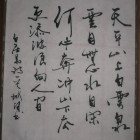 天平山上白雲泉
雲自無心水自閑
何必奔冲山下去
更添波浪向人間
白居易詩